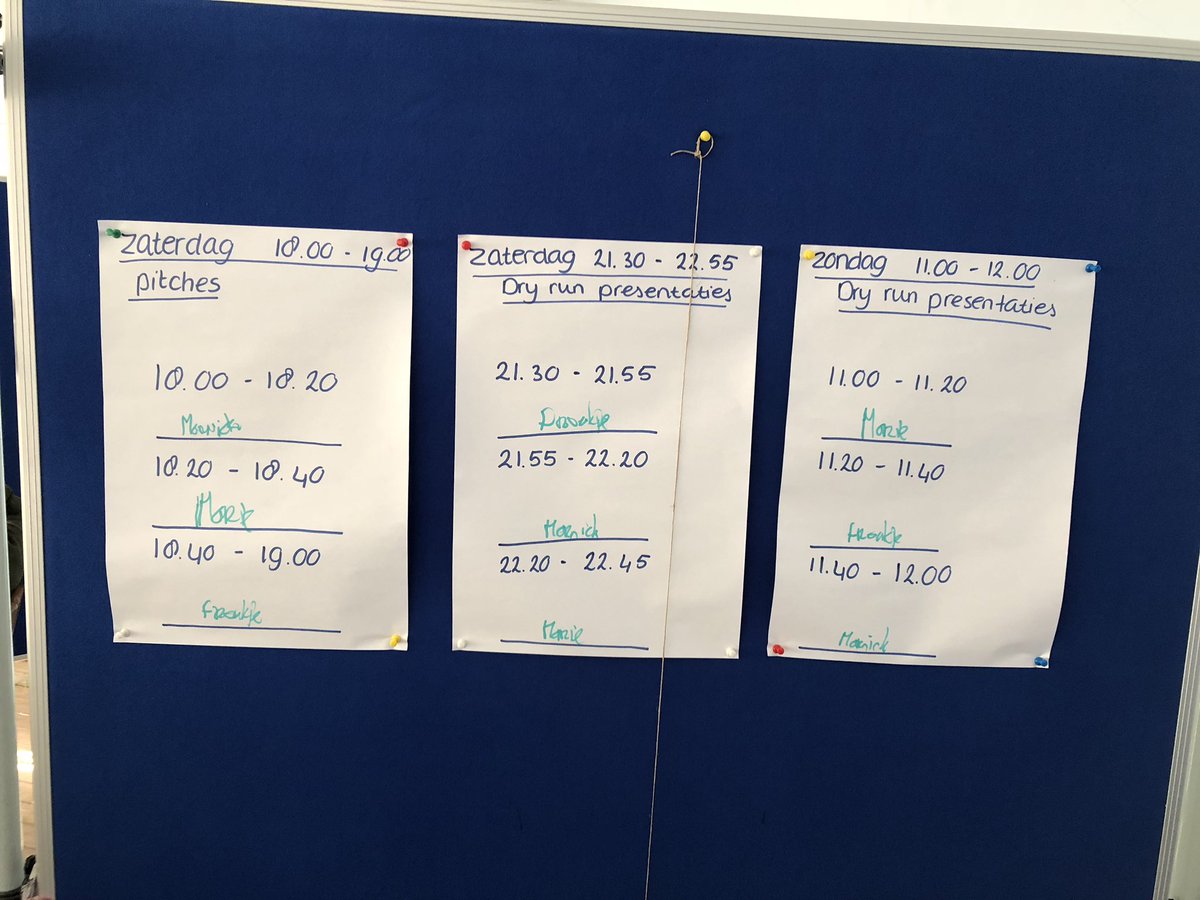 Zaterdag 18.00 - 19.00
pitches
18.00 - 18.20
18.20 - 18.40
Marije
18.40 - 19.00
Froukje
Zaterdag 21.30 - 22.55
Dry run presentaties
21.30 - 21.55
Froukje
21.55 - 22.20
Marnick
22.20 - 22.45
Marije
Zondag 11.00 - 12.00
Dry run presentaties
11.00 - 11.20
Marije
11.20 - 11.40
Froukje
11.40 - 12.00
Marnick